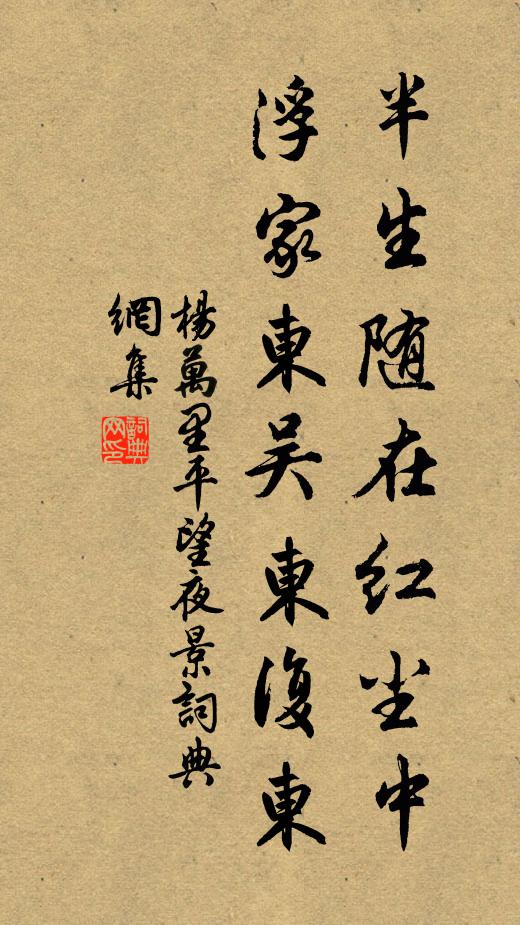 半生随在红尘中
浮家東吴東復東
楊萬里平望夜景詞典
網集
詞典
网印